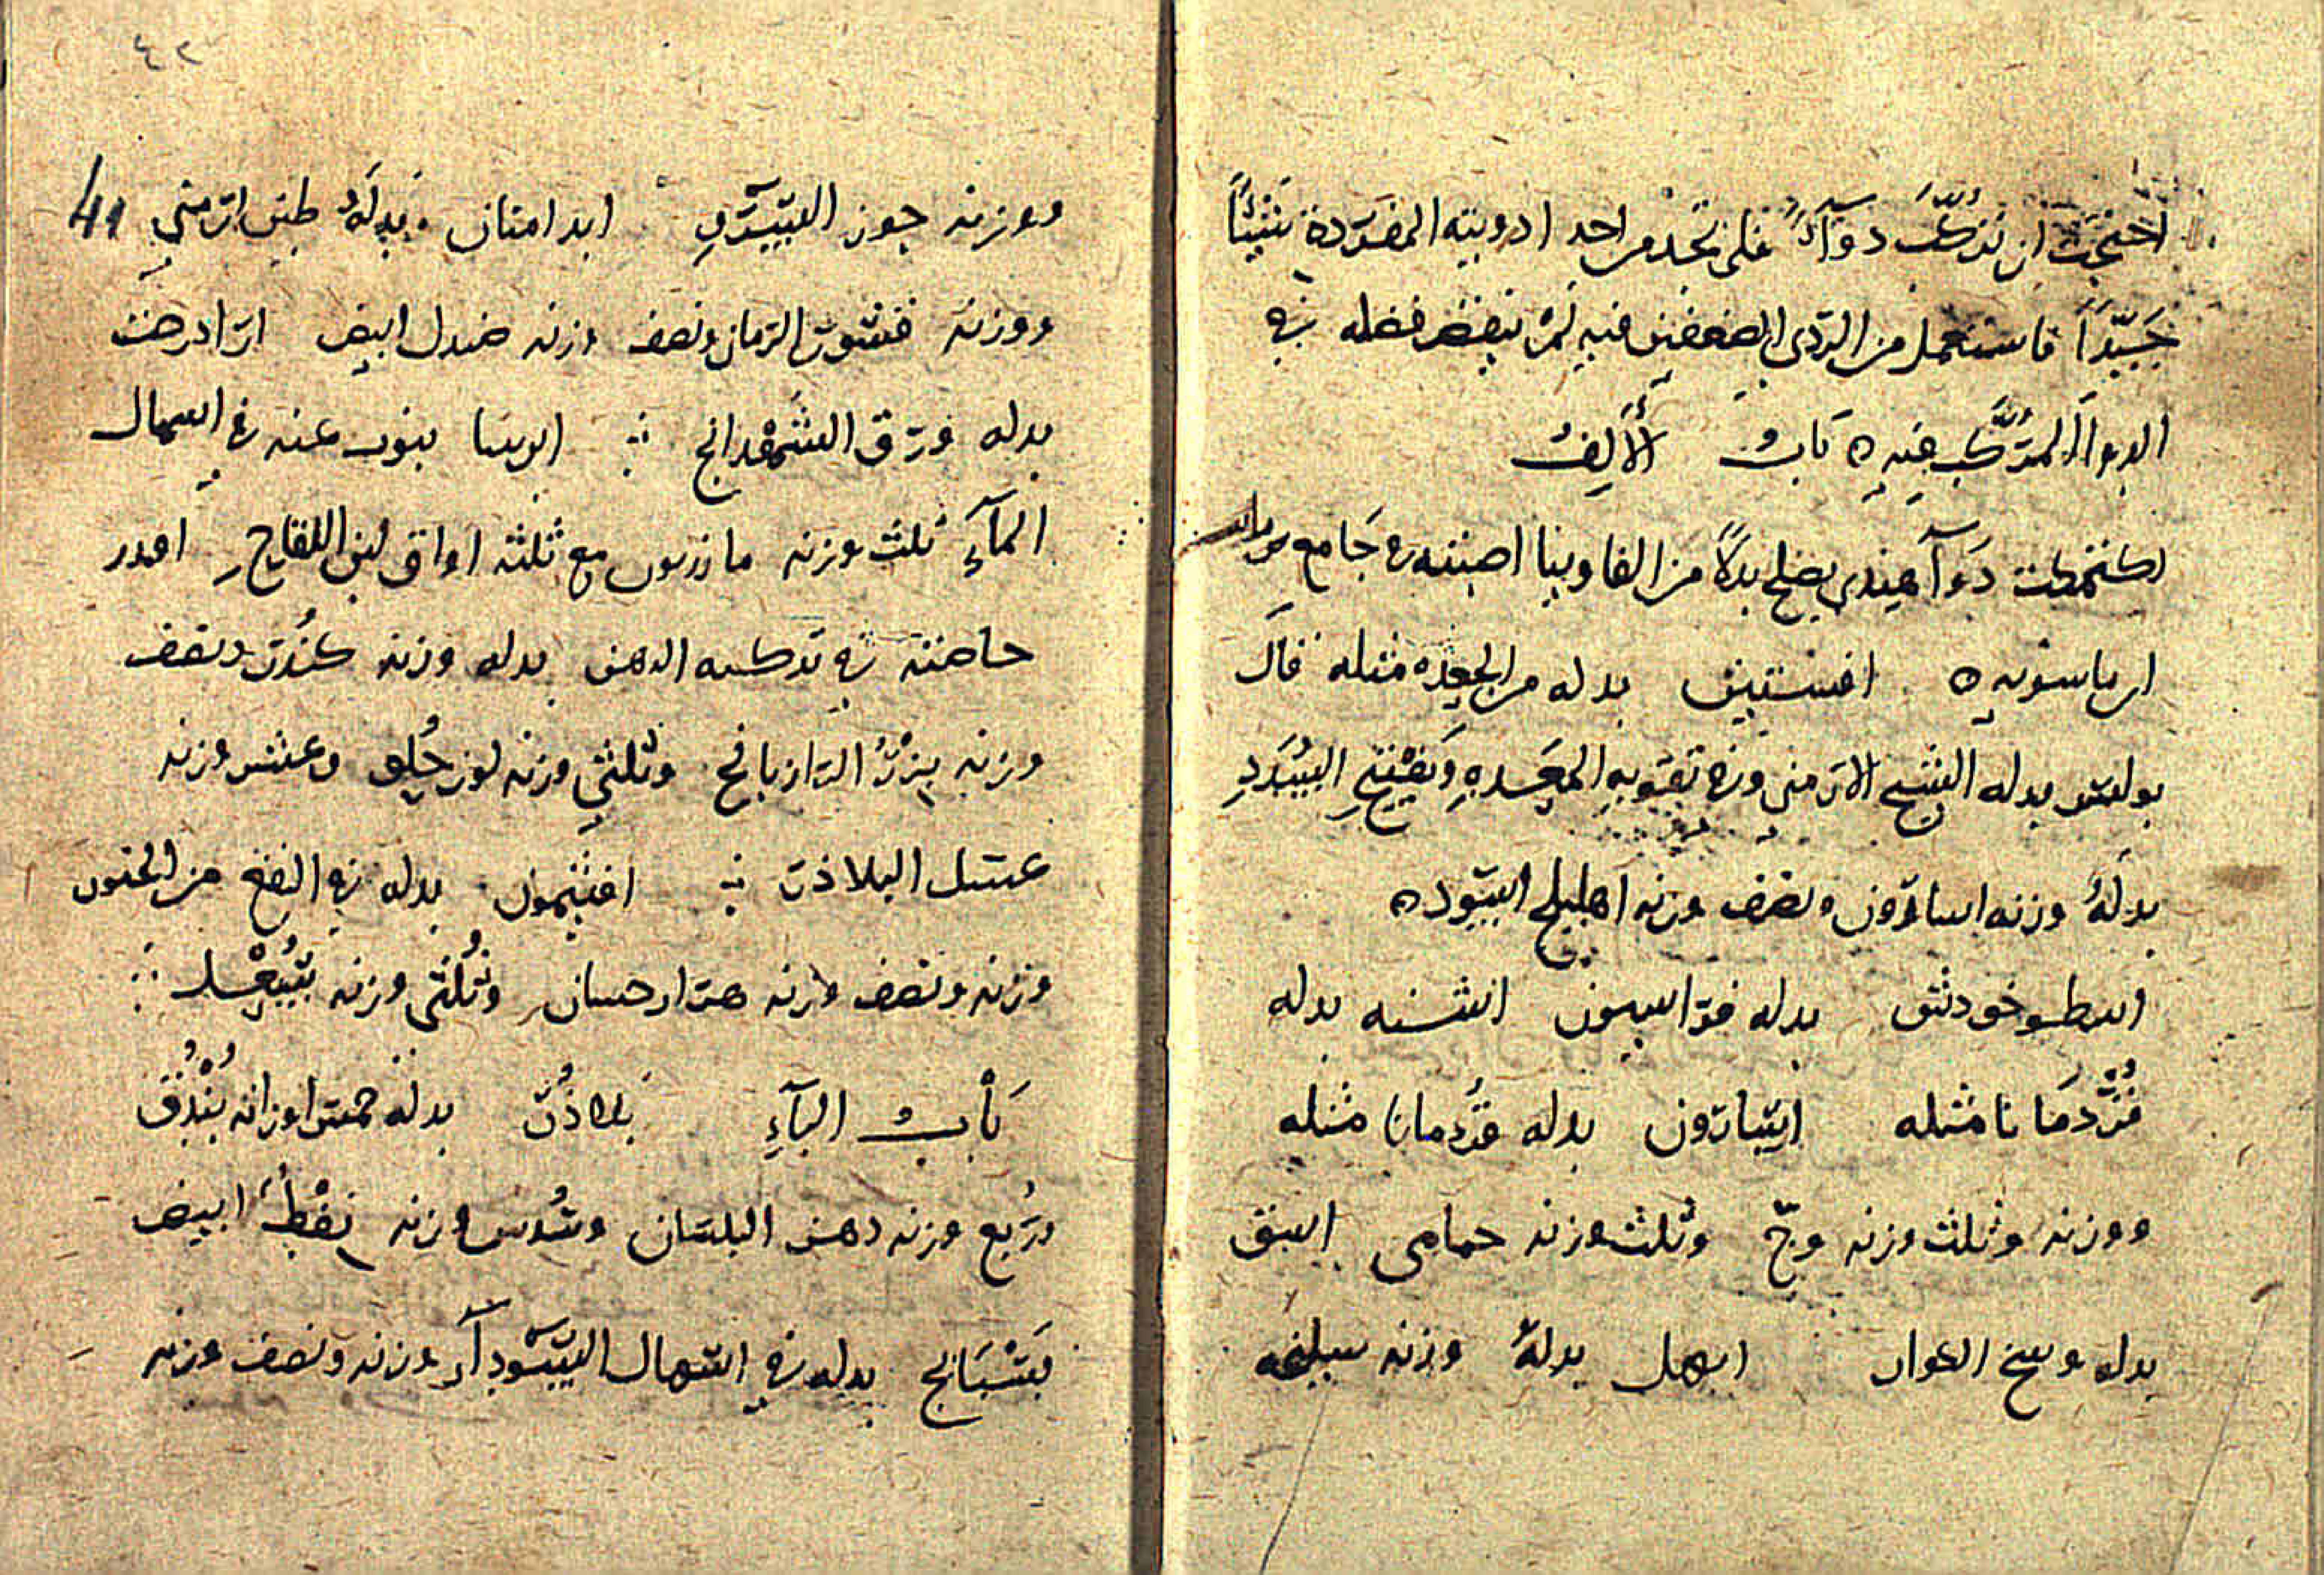 احتجت ان تركّب دوآءً فلم تجد من احد ادويته المفردة شيئاً
جَيّداً فاستعمل من الردى الضعفين فيه لم ينقص فضله في
الدوآ المركّب فيه ه بَابُ الألِفُ
دوآ هندى يصلح بدلاً من الفاوينا اصبته في جَامع
ه افسنتين بدله من الجعده مثله قال
بولس بدله الشيح الارمنى وفي تقويه المعده وتفتيح السدد
بدلهُ وزنه اسارون ونصف وزنه اهليلج اسود ه
اسطوخودس بدله فراسيون اشنه بدله
قُردمَانا مثله اسارون بدله قردمانا مثله
ووزنه وثلث وزنه وجّ وثلث وزنه حمامى اسق
بدله وسخ الكوار ابهل بدلهُ وزنه سليخه
ووزنه جوز السرو ابدامنان بدلهُ طين ارمني 41
ووزنه قشور الرمان ونصف وزنه صندل ابيض ازادرخت
بدله ورق الشهدانج ايرسا ينوب عنه في اسهال
المآءِ ثلث وزنه مازريون مع ثلثه اواق لبن اللقاح
حاضنته في بدله وزنه كندر ونصف
وزنه بزرُ الرازيانج وثلثي وزنه لوز حُلو وعشر وزنه
عسل البلاذر افتيمون بدله في النفع من الجنون
وزنه ونصف وزنه وثُلثى وزنه
بَابُ البآءِ بَلاذُر بدله خمس اوزانه بُنْدُق
ورُبع وزنه دهن البلسان وسُدس وزنه نفْط ابيض
بَسْبَايج بدله في اسهال السودآءِ وزنه ونصف وزنه